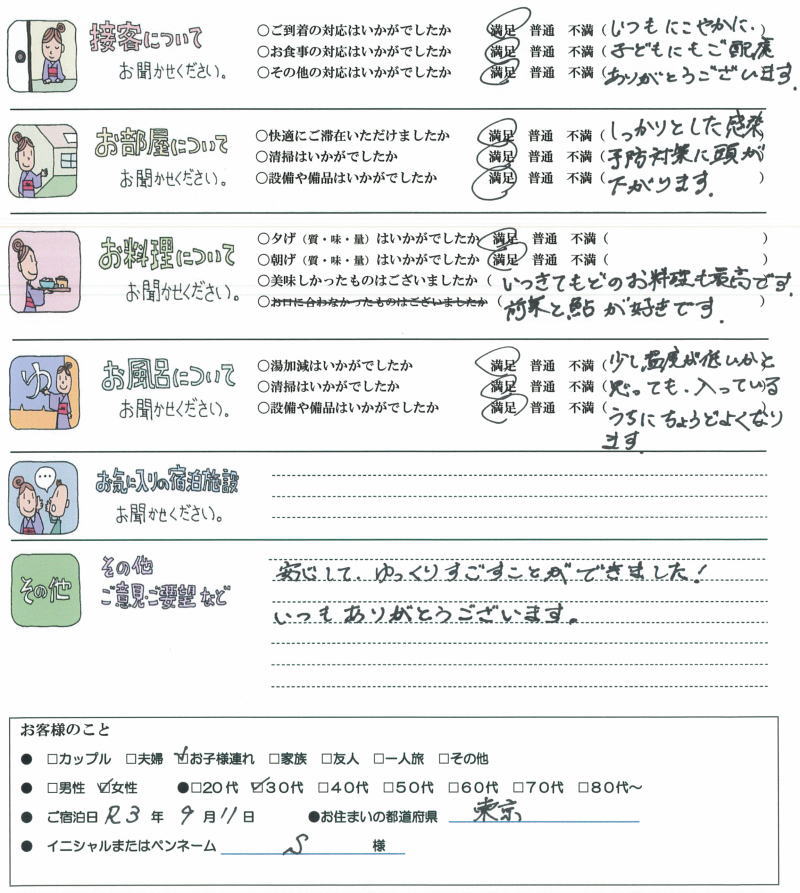 接客について
お聞かせください。
○ご到着の対応はいかがでしたか 満足 普通 不満 (いつもにこやかに、
○お食事の対応はいかがでしたか 満足 普通 不満 (子どもにもご配慮
○その他の対応はいかがでしたか 満足 普通 不満 (ありがとうございます。
お部屋について
お聞かせください。
○快適にご滞在いただけましたか 満足 普通 不満 (しっかりとした感染)
○清掃はいかがでしたか 満足 普通 不満 (予防対策に頭が)
○設備や備品はいかがでしたか 満足 普通 不満 (下がります。)
お料理について
お聞かせください。
○夕げ(質・味・量)はいかがでしたか 満足 普通 不満 ( )
○朝げ(質・味・量)はいかがでしたか 満足 普通 不満 ( )
○美味しかったものはございましたか (いつきてもどのお料理も最高です。
○お口に合わなかったものはございましたか (前菜と鮎が好きです。)
お風呂について
お聞かせください。
ゆ
○湯加減はいかがでしたか 満足 普通 不満 (少し温度が低いかと
○清掃はいかがでしたか 満足 普通 不満 (思っても、入っている
○設備や備品はいかがでしたか 満足 普通 不満 (うちにちょうどよくなり)
ます。
お気に入りの宿泊施設
お聞かせください。
その他
その他
ご意見・ご要望など
安心して、ゆっくりすごすことができました!
いつもありがとうございます。
お客様のこと
● □カップル □夫婦 ☑お子様連れ □家族 □友人 □一人旅 □その他
● □男性 ☑女性 ●□20代 ☑30代 □40代 □50代 □60代 □70代 □80代〜
● ご宿泊日 R3 年 9 月 11 日 ●お住まいの都道府県 東京
● イニシャルまたはペンネーム S 様